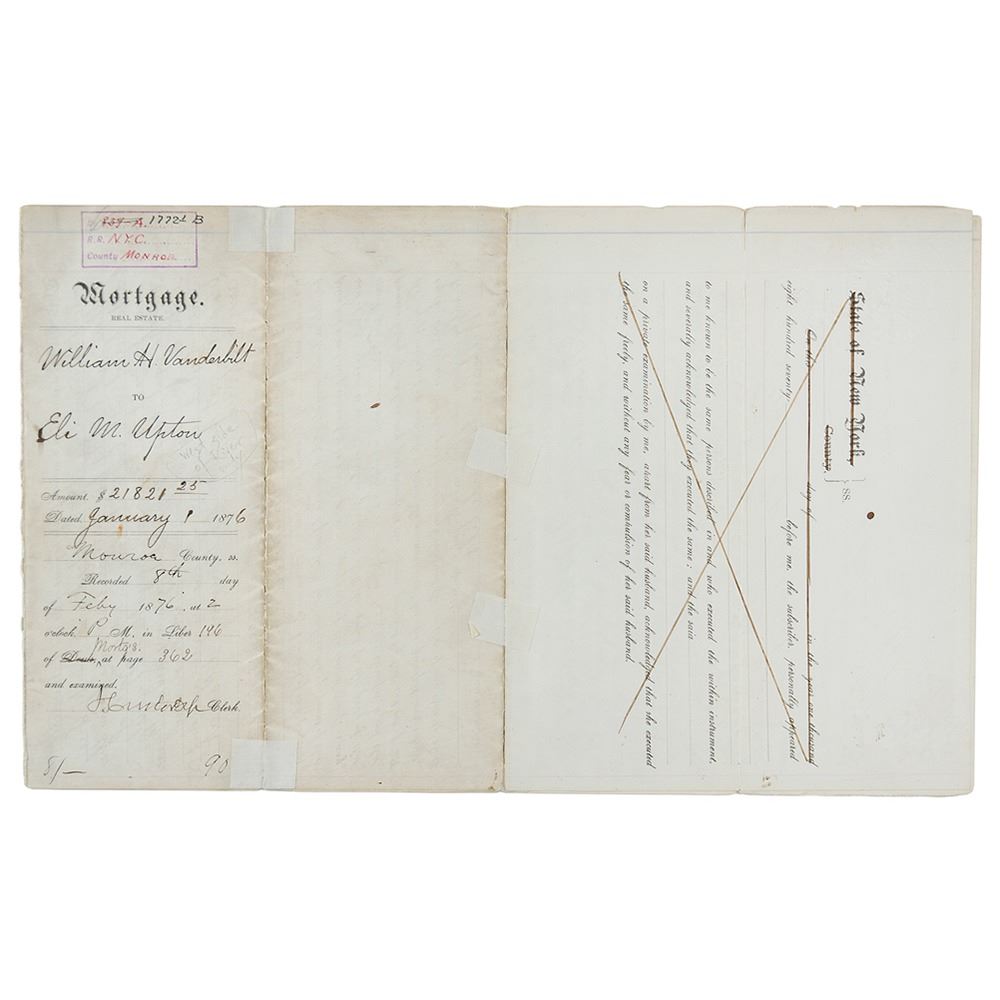 1772½ B
R.R. N.Y.C.
County MONROE
Mortgage.
REAL ESTATE.
William H. Vanderbilt
TO
Eli M. Upton
West Side
River
Amount, $ 21821 25
Dated, January 1 1876
Monroe County, ss.
Recorded 8th day
of Feby 1876, at 2
o'clock P M. in Liber 196
Mortgs.
of Deeds, at page 362
and examined.
Clerk
8/— 90
State of New York,
County, } SS.
On this day of in the year one thousand
eight hundred seventy- before me, the subscriber, personally appeared
to me known to be the same persons described in and who executed the within instrument,
and severally acknowledged that they executed the same; and the said
on a private examination by me, apart from her said husband, acknowledged that she executed
the same freely, and without any fear or compulsion of her said husband.